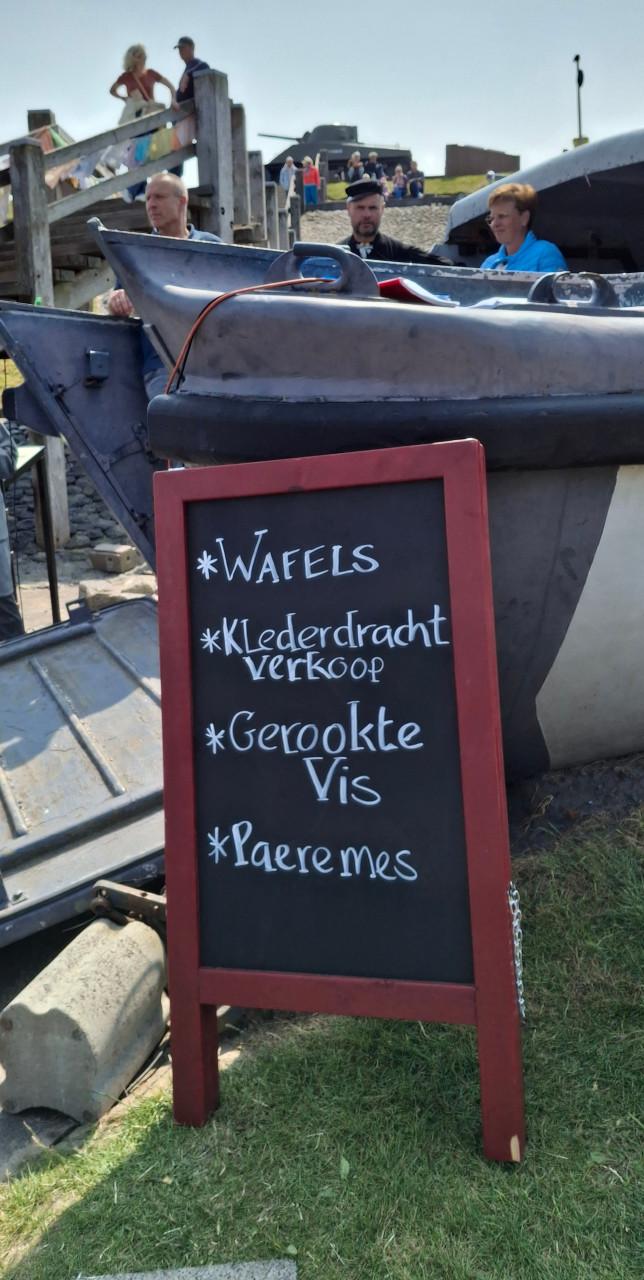 *WAFELS
*KLederdracht
verkoop
*Gerookte
Vis
*Paeremes